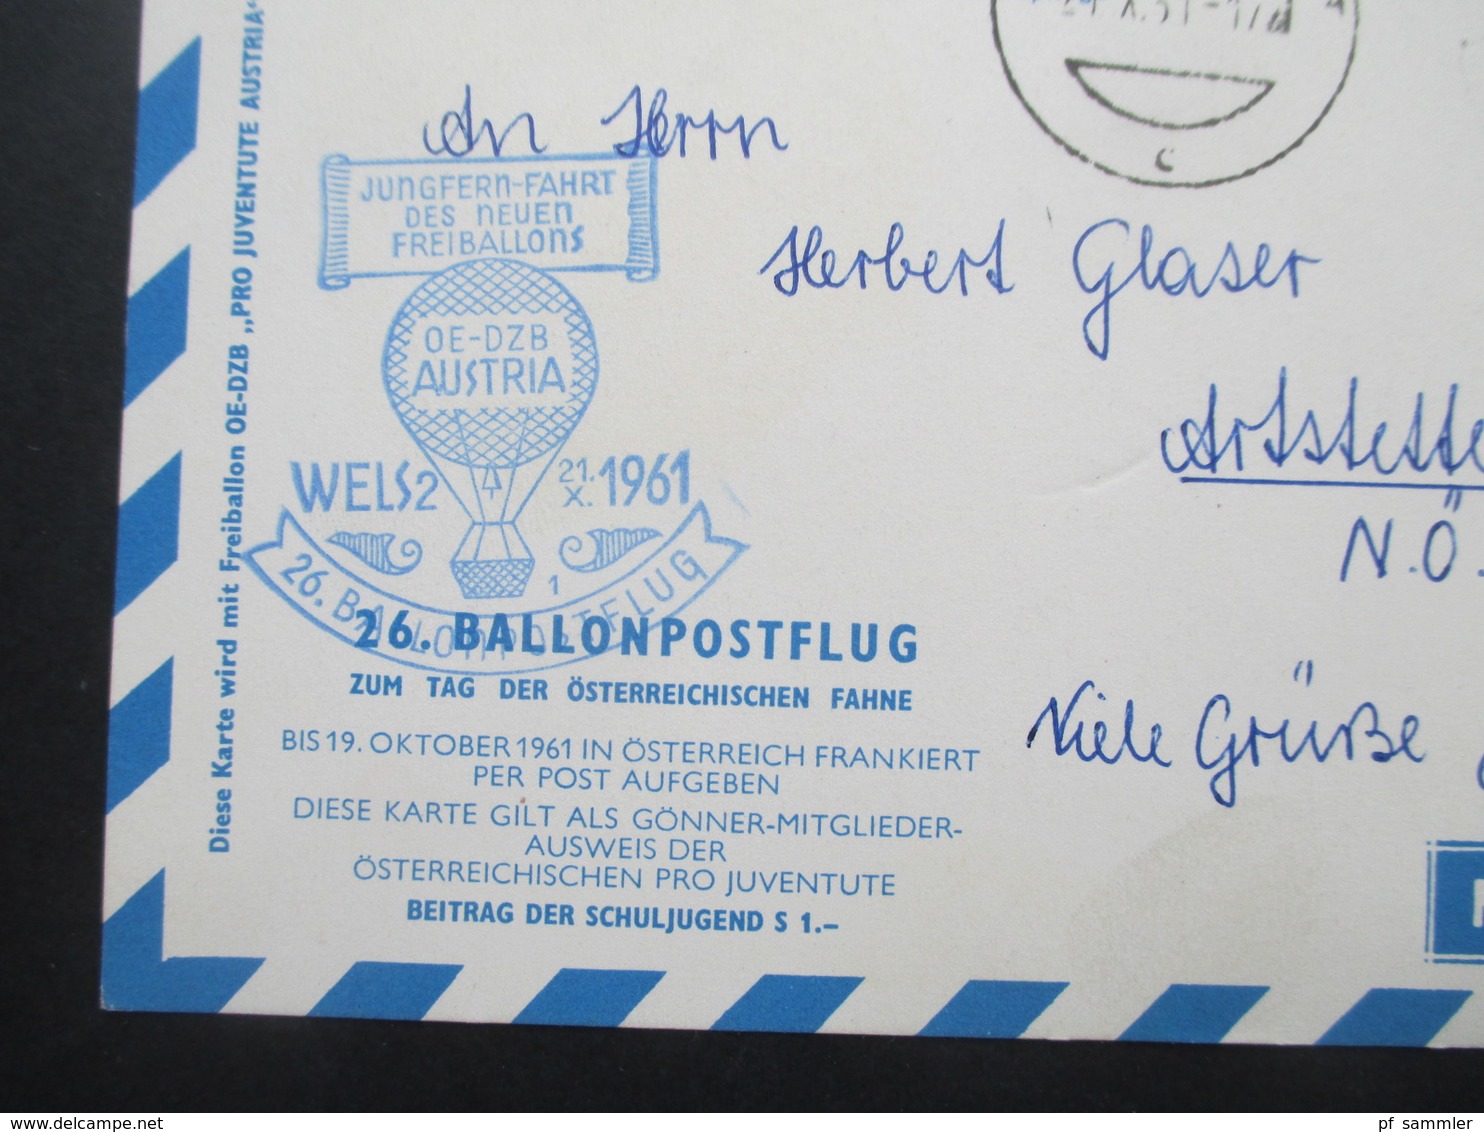 Diese Karte wird mit Freiballon OE-DZB „PRO JUVENTUTE AUSTRIA“
An Herrn
Herbert Glaser
N.Ö.
Viele Grüße
JUNGFERN-FAHRT
DES NEUEN
FREIBALLONS
OE-DZB
AUSTRIA
WELS 2
21.X.1961
1
26. BALLONPOSTFLUG
26. BALLONPOSTFLUG
ZUM TAG DER ÖSTERREICHISCHEN FAHNE
BIS 19. OKTOBER 1961 IN ÖSTERREICH FRANKIERT
PER POST AUFGEBEN
DIESE KARTE GILT ALS GÖNNER-MITGLIEDER-
AUSWEIS DER
ÖSTERREICHISCHEN PRO JUVENTUTE
BEITRAG DER SCHULJUGEND S 1.–
c
www.delcampe.net
pf_sammler